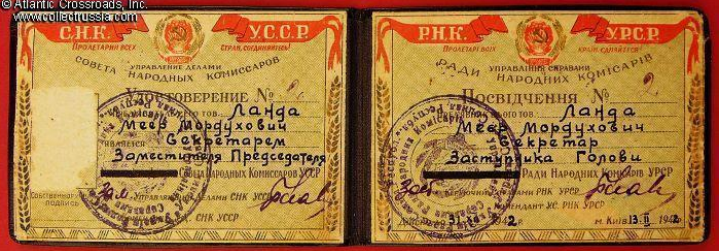 © Atlantic Crossroads, Inc.
www.collectrussia.com
С.Н.К. У.С.С.Р.
ПРОЛЕТАРИИ ВСЕХ СТРАН, СОЕДИНЯЙТЕСЬ!
УПРАВЛЕНИЕ ДЕЛАМИ
СОВЕТА НАРОДНЫХ КОМИССАРОВ
Удостоверение №
тов. Ланда
Меер Мордухович
является Секретарем
Заместителя Председателя
Совета Народных Комиссаров УССР
Собственноручная подпись
Зам. УПРАВЛЯЮЩИЙ ДЕЛАМИ СНК УССР
СНК УССР
31. 1942
РНК. УРСР.
ПРОЛЕТАРІ ВСІХ КРАЇН, ЄДНАЙТЕСЯ!
УПРАВЛІННЯ СПРАВАМИ
РАДИ НАРОДНИХ КОМІСАРІВ
Посвідчення №
тов. Ланда
Меер Мордухович
Секретар
Заступника Голови
Ради Народних Комісарів УРСР
Зас. РНК УРСР
КОМЕНДАНТ УС. РНК УРСР
м. Київ 13.II 1942